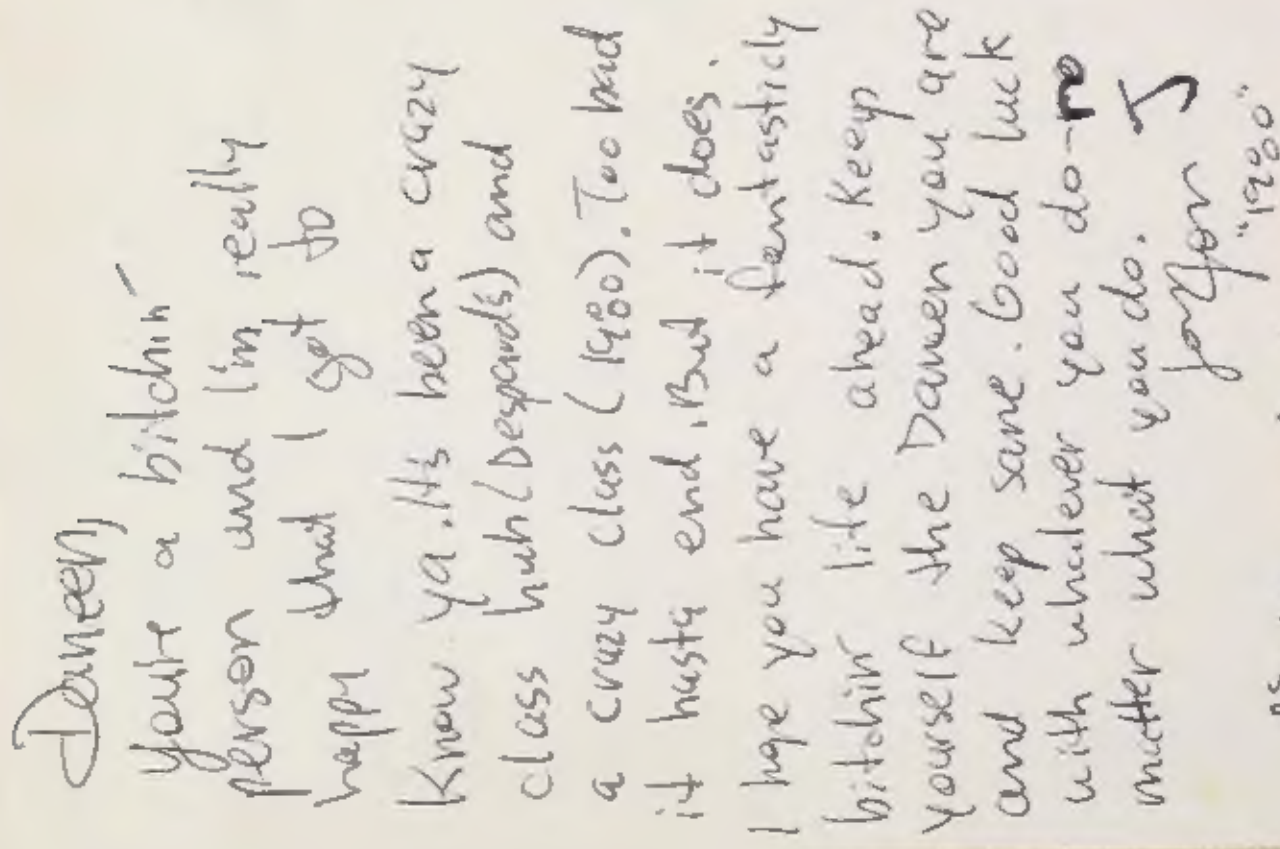 Daneen,
You're a bitchin'
person and I'm really
happy that I got to
Know ya. It's been a crazy
class huh (Despard's) and
a crazy class (1980). Too bad
it hasta end. But it does.
I hope you have a fantasticly
bitchin life ahead. Keep
yourself the Daneen you are
and keep sane. Good luck
with whatever you do-no
matter what you do.
"1980"